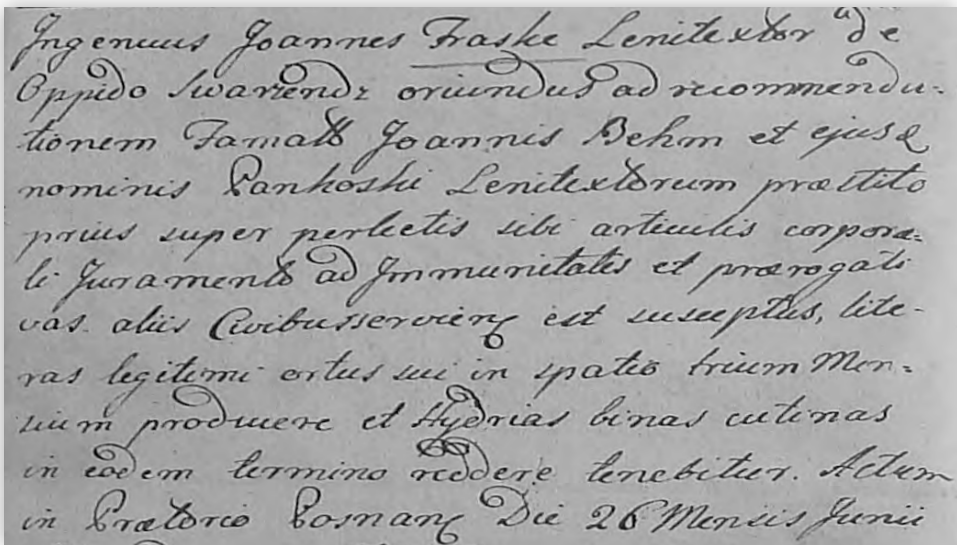 Ingenuus Joannes Fraske Lenitextor de
Oppido Swarzendz oriundus ad recommenda-
tionem Famatt Joannis Behm et ejusd
nominis Pankoski Lenitextorum præstito
prius super perlectis sibi articulis corpora-
li Juramento ad Immunitates et prærogati
vas aliis Civibus servienę est susceptus, lite-
ras legitimi ortus sui in spatio trium Men-
sium producere et Hydrias binas cutinas
in eodem termino reddere tenebitur. Actum
in Prætorio Posnanę Die 26 Mensis Junii